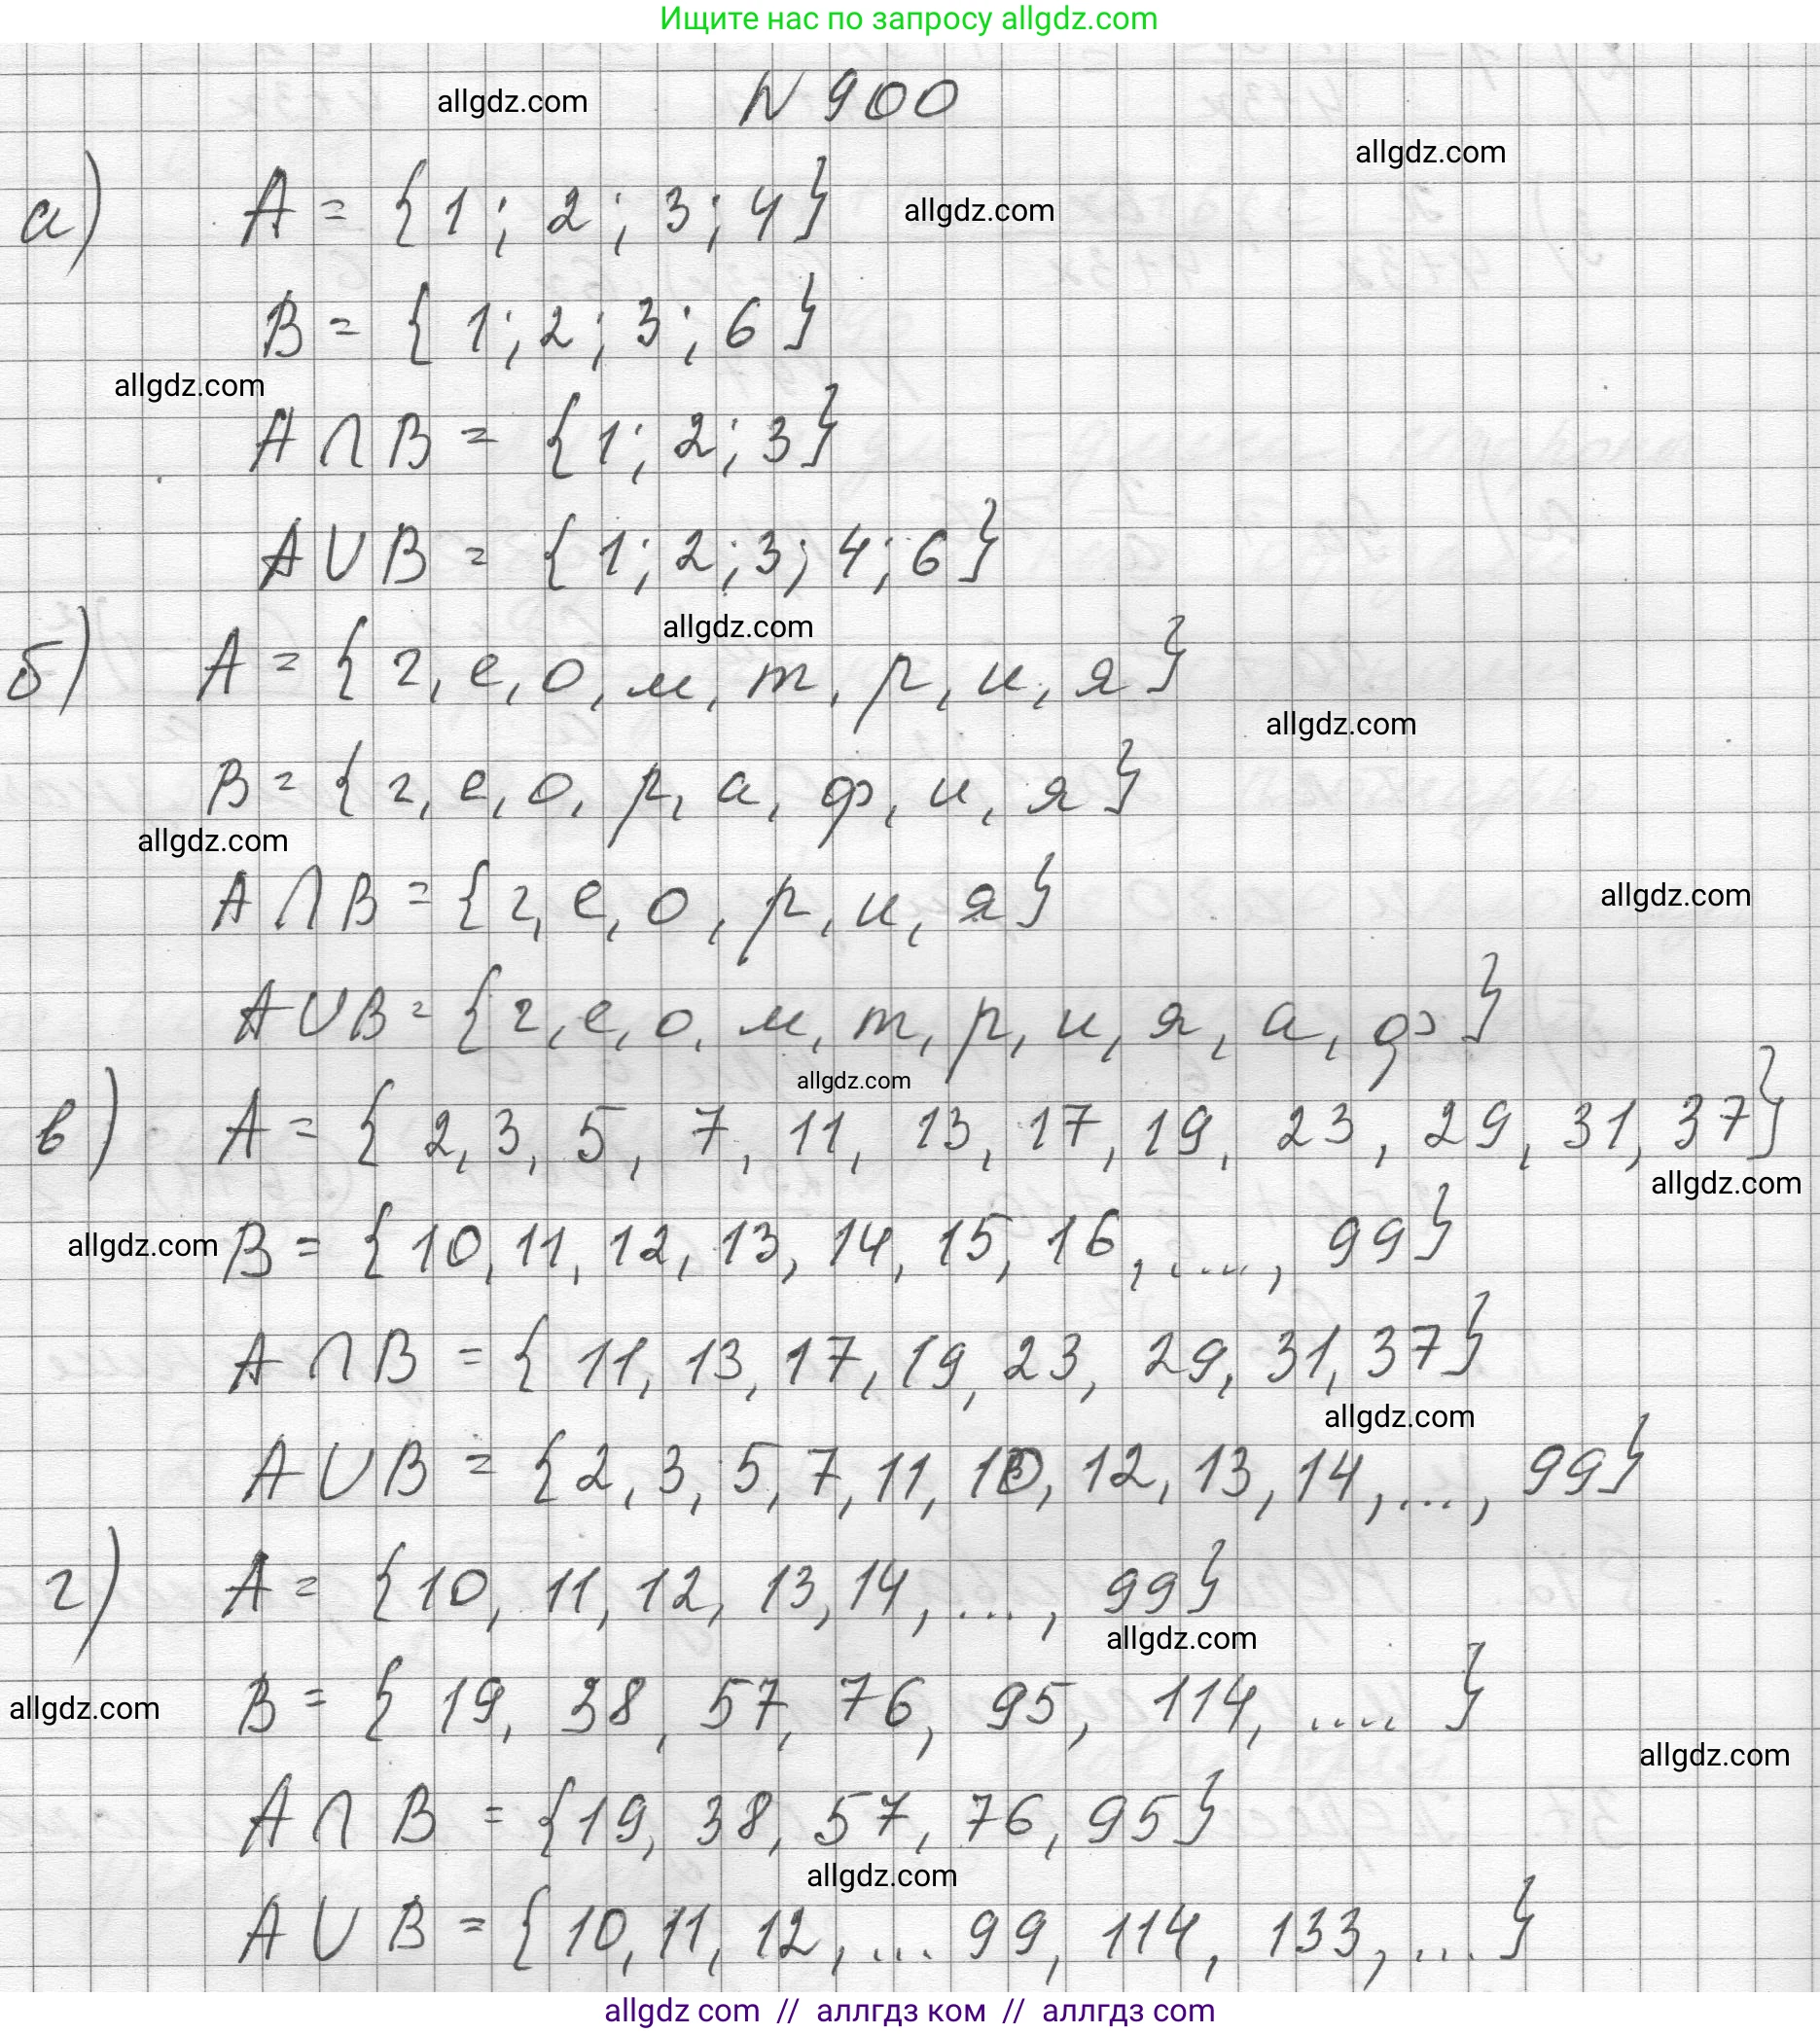 Ищите нас по запросу allgdz.com
N 900
allgdz.com
allgdz.com
а) A = {1; 2; 3; 4}
allgdz.com
B = {1; 2; 3; 6}
allgdz.com
A ∩ B = {1; 2; 3}
A ∪ B = {1; 2; 3; 4; 6}
allgdz.com
б) A = {г, е, о, м, т, р, и, я}
allgdz.com
B = {г, е, о, р, а, ф, и, я}
allgdz.com
A ∩ B = {г, е, о, р, и, я}
allgdz.com
A ∪ B = {г, е, о, м, т, р, и, я, а, ф}
allgdz.com
в) A = {2, 3, 5, 7, 11, 13, 17, 19, 23, 29, 31, 37}
allgdz.com
allgdz.com
B = {10, 11, 12, 13, 14, 15, 16, ...., 99}
A ∩ B = {11, 13, 17, 19, 23, 29, 31, 37}
allgdz.com
A ∪ B = {2, 3, 5, 7, 11, 10, 12, 13, 14, ..., 99}
г) A = {10, 11, 12, 13, 14, ..., 99}
allgdz.com
allgdz.com
B = {19, 38, 57, 76, 95, 114, ..... }
allgdz.com
A ∩ B = {19, 38, 57, 76, 95}
allgdz.com
A ∪ B = {10, 11, 12, ... 99, 114, 133, ... }
allgdz com // аллгдз ком // аллгдз com